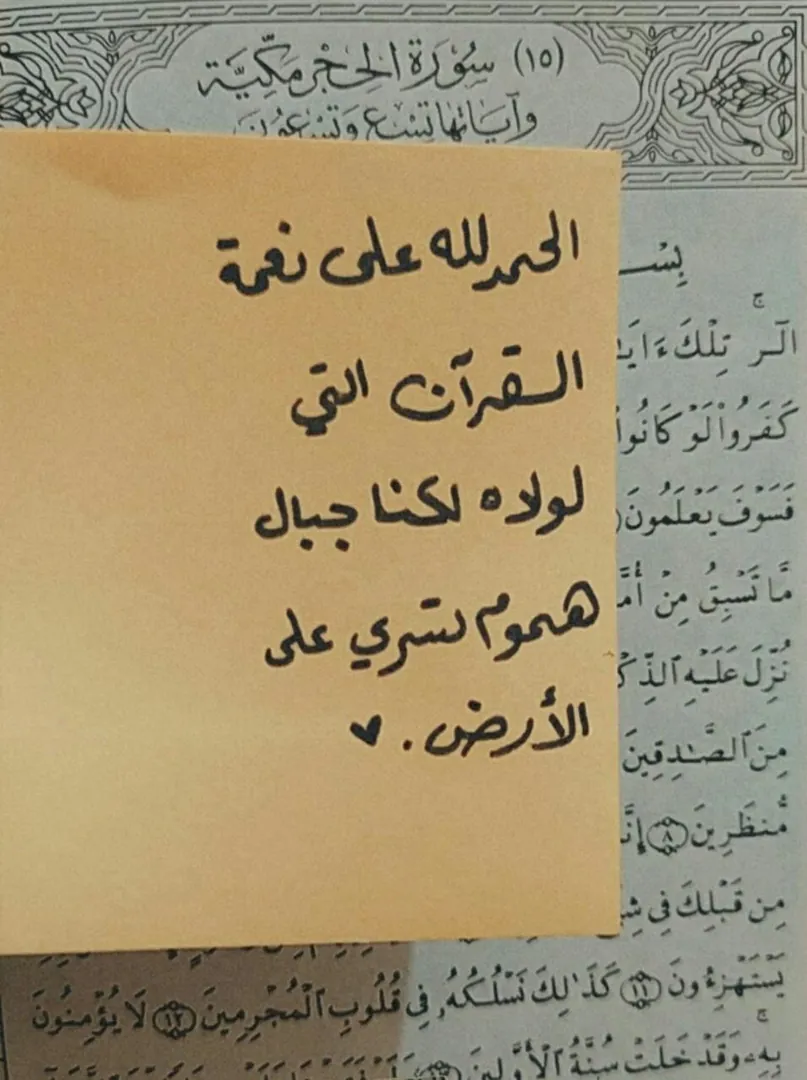 (١٥) سُورَةُ الحِجْرِ مَكِّيَّة
وَآيَاتُهَا تِسْعٌ وَتِسْعُونَ
الحمدلله على نعمة
القرآن التي
لولاه لكنا جبال
هموم تسري على
الأرض . ♥
بِسْـ
الٓر ۚ تِلْكَ ءَايَـٰ
كَفَرُوا۟ لَوْ كَانُوا۟
فَسَوْفَ يَعْلَمُونَ
مَّا تَسْبِقُ مِنْ أُمَّـ
نُزِّلَ عَلَيْهِ ٱلذِّكْـ
مِنَ ٱلصَّـٰدِقِينَ
مُّنظَرِينَ ٨ إِنَّـ
مِن قَبْلِكَ فِى شِيَـ
يَسْتَهْزِءُونَ ١١ كَذَٰلِكَ نَسْلُكُهُۥ فِى قُلُوبِ ٱلْمُجْرِمِينَ ١٢ لَا يُؤْمِنُونَ
بِهِۦ ۖ وَقَدْ خَلَتْ سُنَّةُ ٱلْأَوَّلِينَ